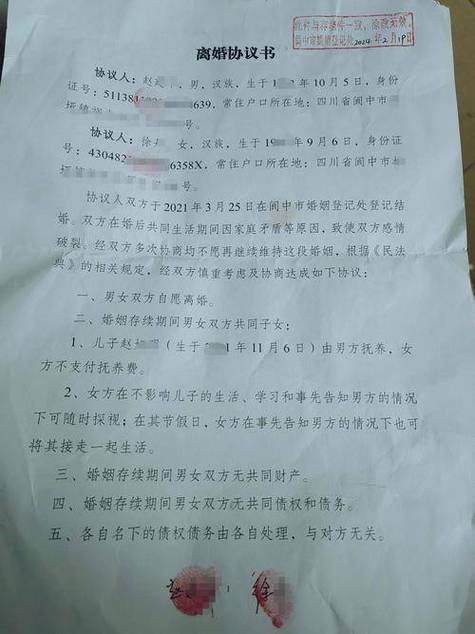 此件与存档件一致，涂改无效。
阆中市婚姻登记处2024年2月19日
离婚协议书
协议人：赵 ，男，汉族，生于1 2年10月5日，身份
证号：51138 639，常住户口所在地：四川省阆中市
垭镇 号。
协议人：徐 女，汉族，生于19 年9月6日，身份证
号：430482 6358X，常住户口所在地：四川省阆中市
垭镇 号。
协议人双方于2021年3月25日在阆中市婚姻登记处登记结
婚。双方在婚后共同生活期间因家庭矛盾等原因，致使双方感情
破裂。经双方多次协商均不愿再继续维持这段婚姻，根据《民法
典》的相关规定，经双方慎重考虑及协商达成如下协议：
一、男女双方自愿离婚。
二、婚姻存续期间男女双方共同子女；
1、儿子赵 （生于 1年11月6日）由男方抚养，女
方不支付抚养费。
2、女方在不影响儿子的生活、学习和事先告知男方的情况
下可随时探视；在其节假日，女方在事先告知男方的情况下也可
将其接走一起生活。
三、婚姻存续期间男女双方无共同财产。
四、婚姻存续期间男女双方无共同债权和债务。
五、各自名下的债权债务由各自处理，与对方无关。
赵 徐